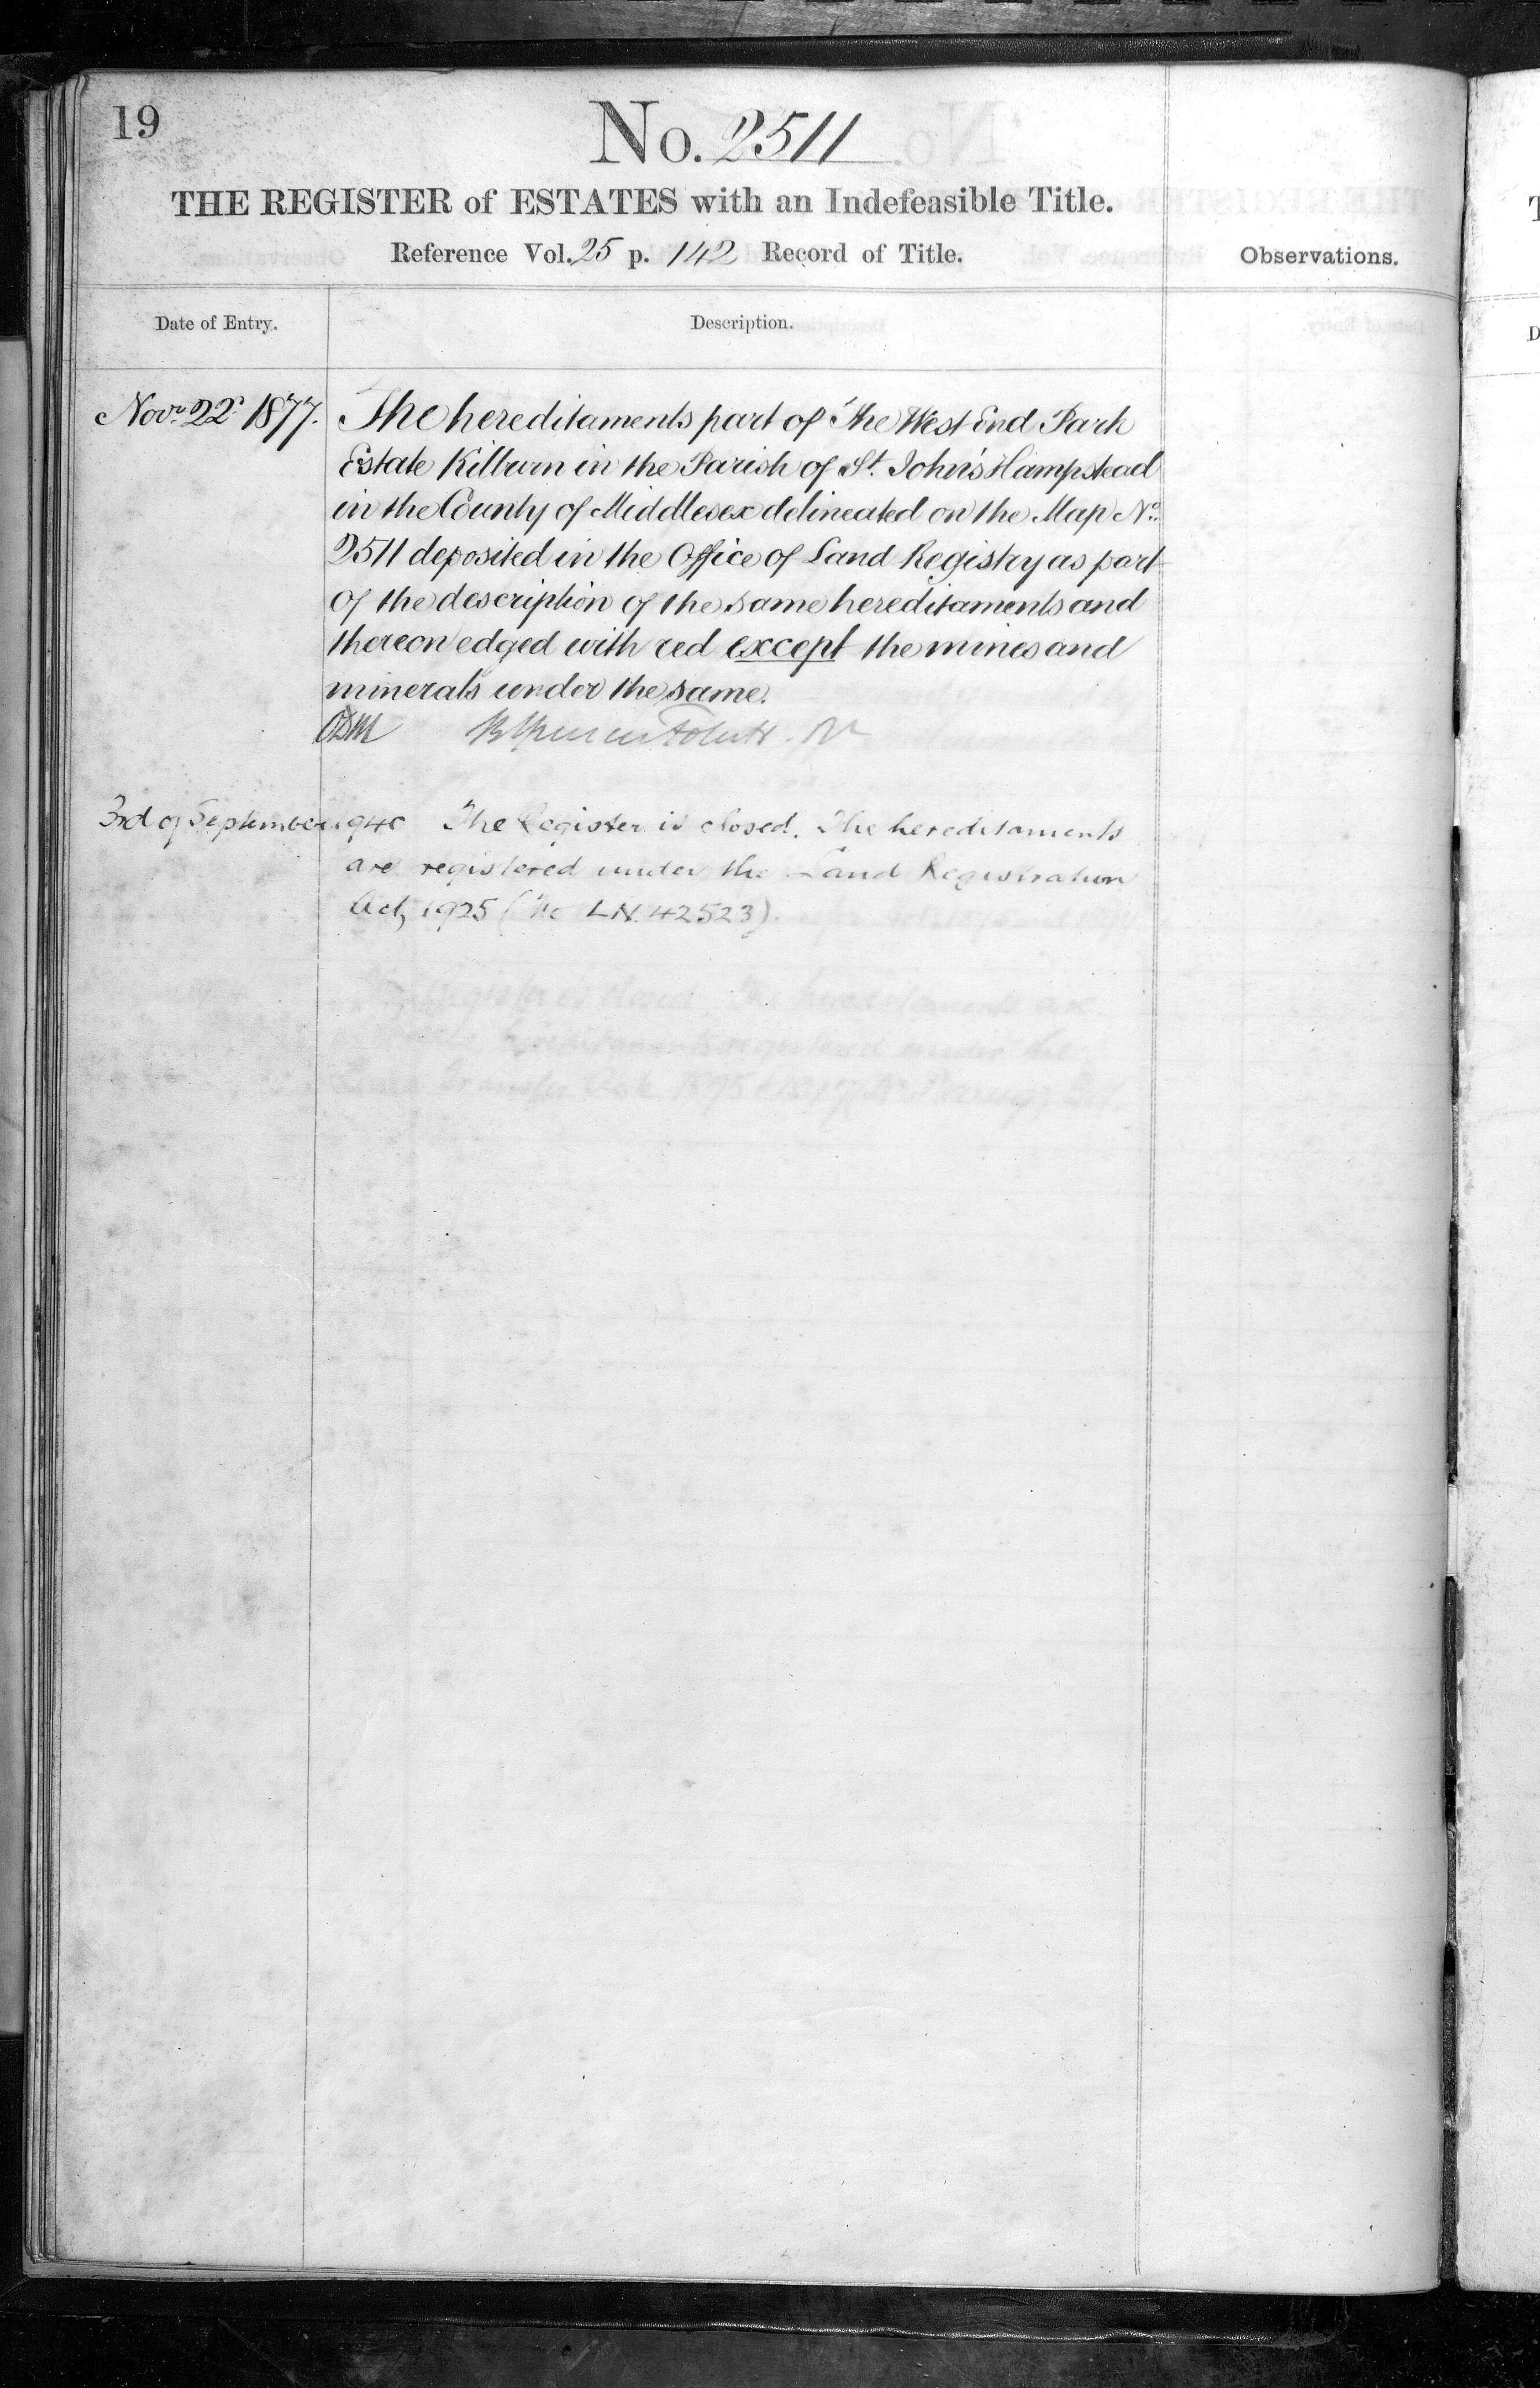 19
No. 2511
THE REGISTER of ESTATES with an Indefeasible Title.
Reference Vol. 25 p. 142 Record of Title.
Observations.
Date of Entry.
Description.
Novr 22d 1877. The hereditaments part of "The West End Park
Estate Kilburn in the Parish of St. John's Hampstead
in the County of Middlesex delineated on the Map No.
2511 deposited in the Office of Land Registry as part
of the description of the same hereditaments and
thereon edged with red except the mines and
minerals under the same.
3rd of September 1940 The Register is closed. The hereditaments
are registered under the Land Registration
Act, 1925 (No LN. 42523).